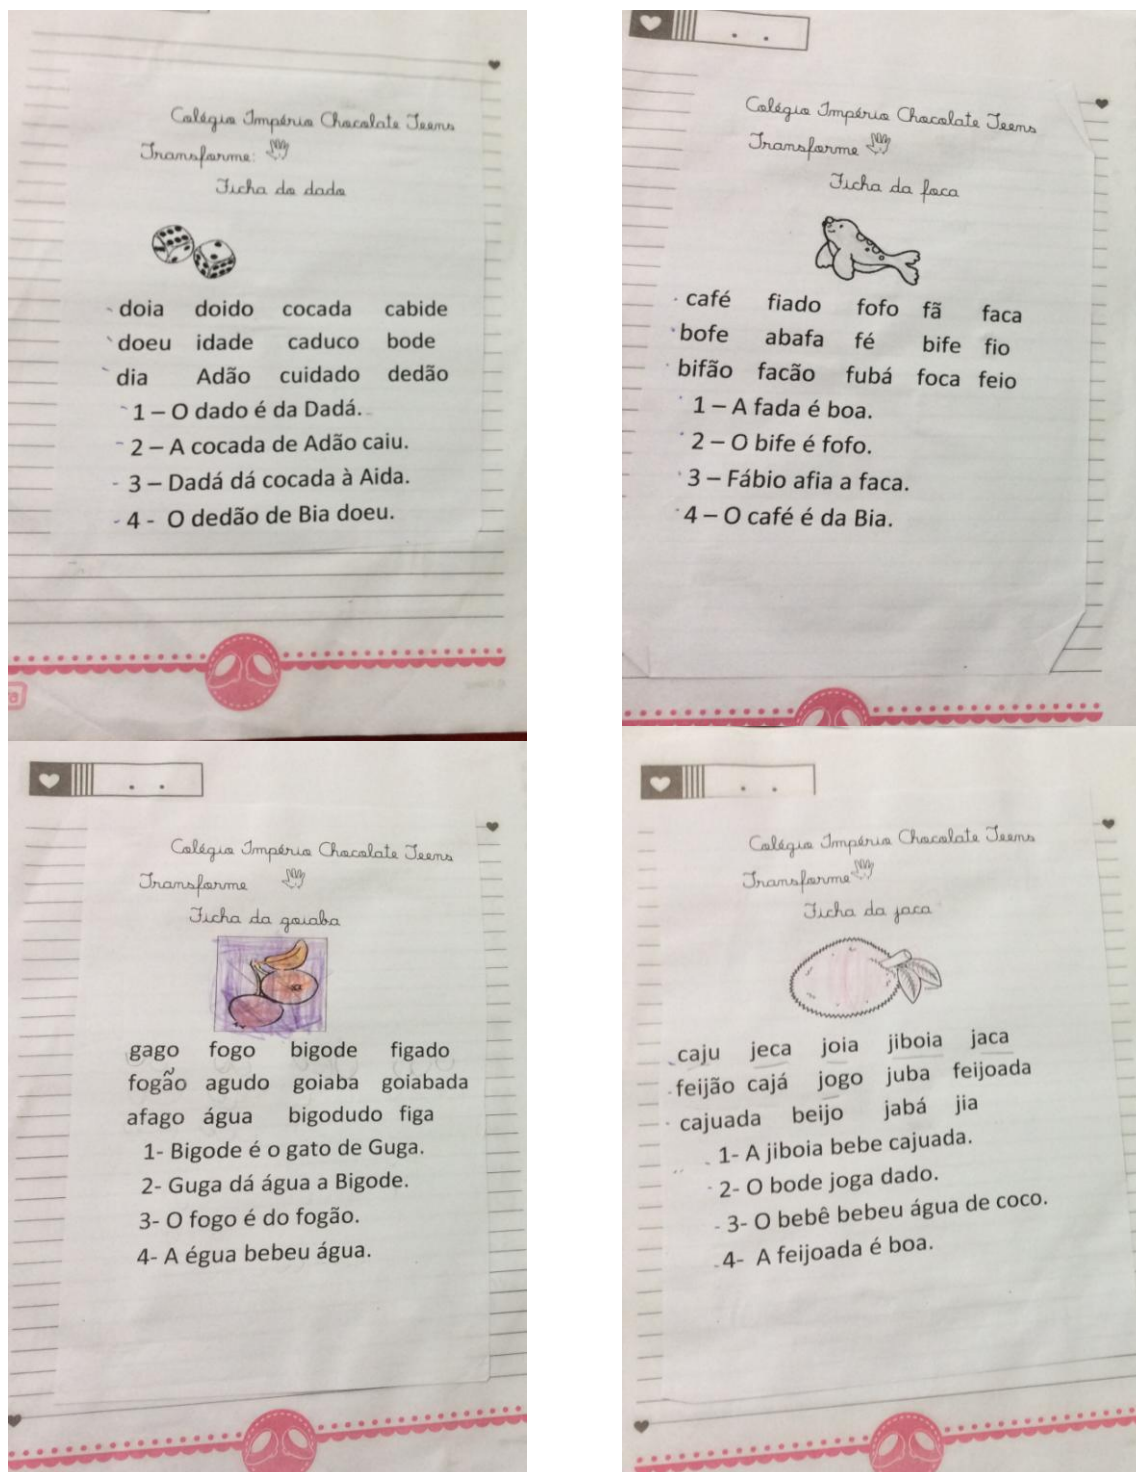 Colégio Império Chocolate Teens
Transforme:
Ficha do dado
doia doido cocada cabide
doeu idade caduco bode
dia Adão cuidado dedão
1 – O dado é da Dadá.
2 – A cocada de Adão caiu.
3 – Dadá dá cocada à Aida.
4 - O dedão de Bia doeu.
Colégio Império Chocolate Teens
Transforme
Ficha da foca
café fiado fofo fã faca
bofe abafa fé bife fio
bifão facão fubá foca feio
1 – A fada é boa.
2 – O bife é fofo.
3 – Fábio afia a faca.
4 – O café é da Bia.
Colégio Império Chocolate Teens
Transforme
Ficha da goiaba
gago fogo bigode figado
fogão agudo goiaba goiabada
afago água bigodudo figa
1- Bigode é o gato de Guga.
2- Guga dá água a Bigode.
3- O fogo é do fogão.
4- A égua bebeu água.
Colégio Império Chocolate Teens
Transforme
Ficha da jaca
caju jeca joia jiboia jaca
feijão cajá jogo juba feijoada
cajuada beijo jabá jia
1- A jiboia bebe cajuada.
2- O bode joga dado.
3- O bebê bebeu água de coco.
4- A feijoada é boa.